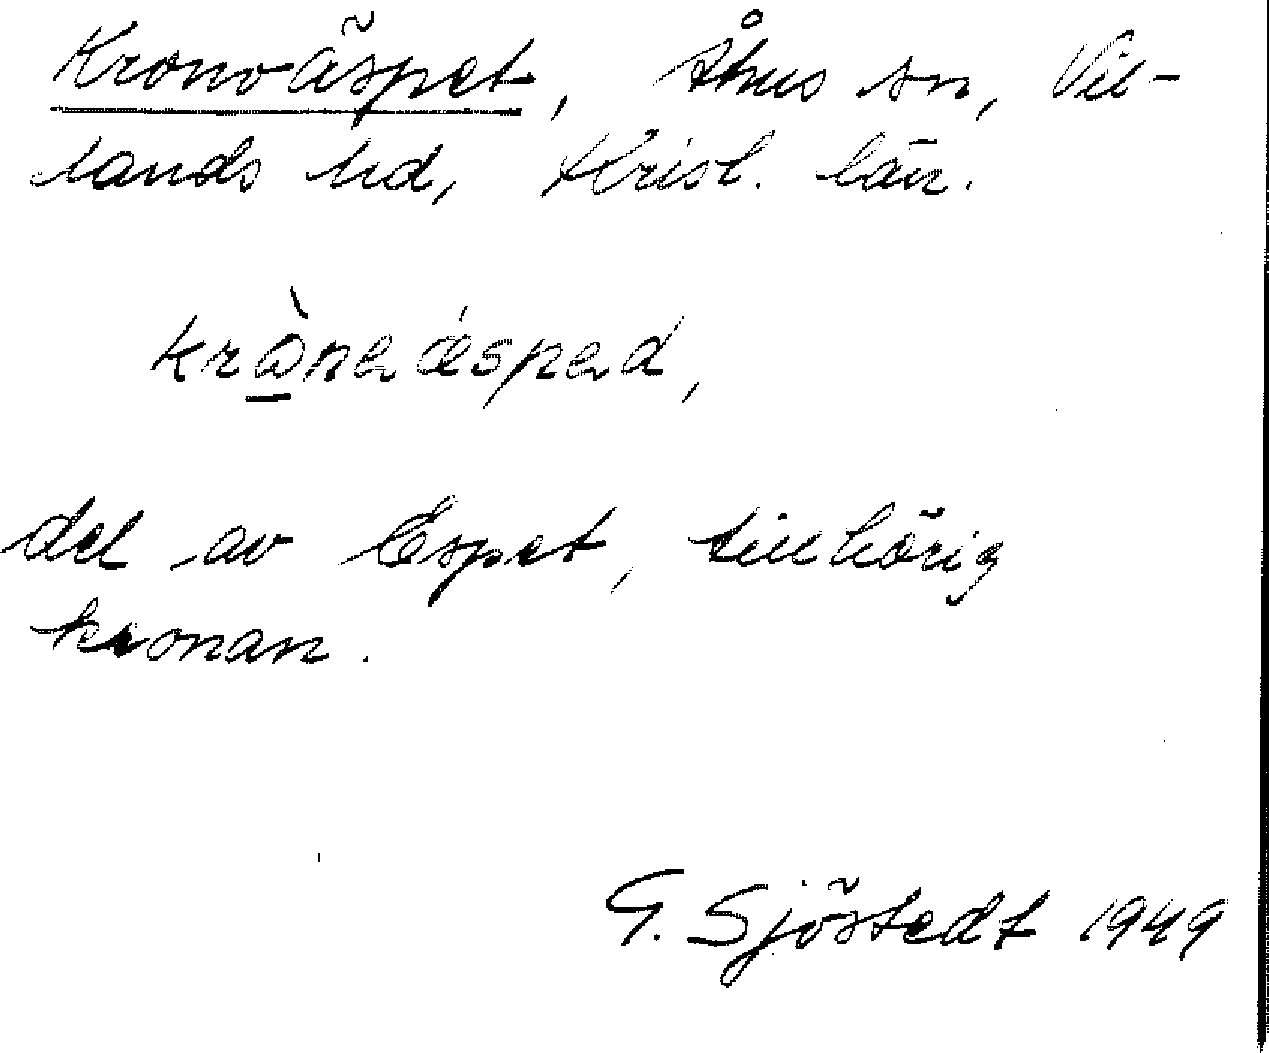 Kronoäspet, Åhus sn, Vil-
lands hd, Krist. län.
krònaæ̀spad,
del av Espet, tillhörig
kronan.
G. Sjöstedt 1949